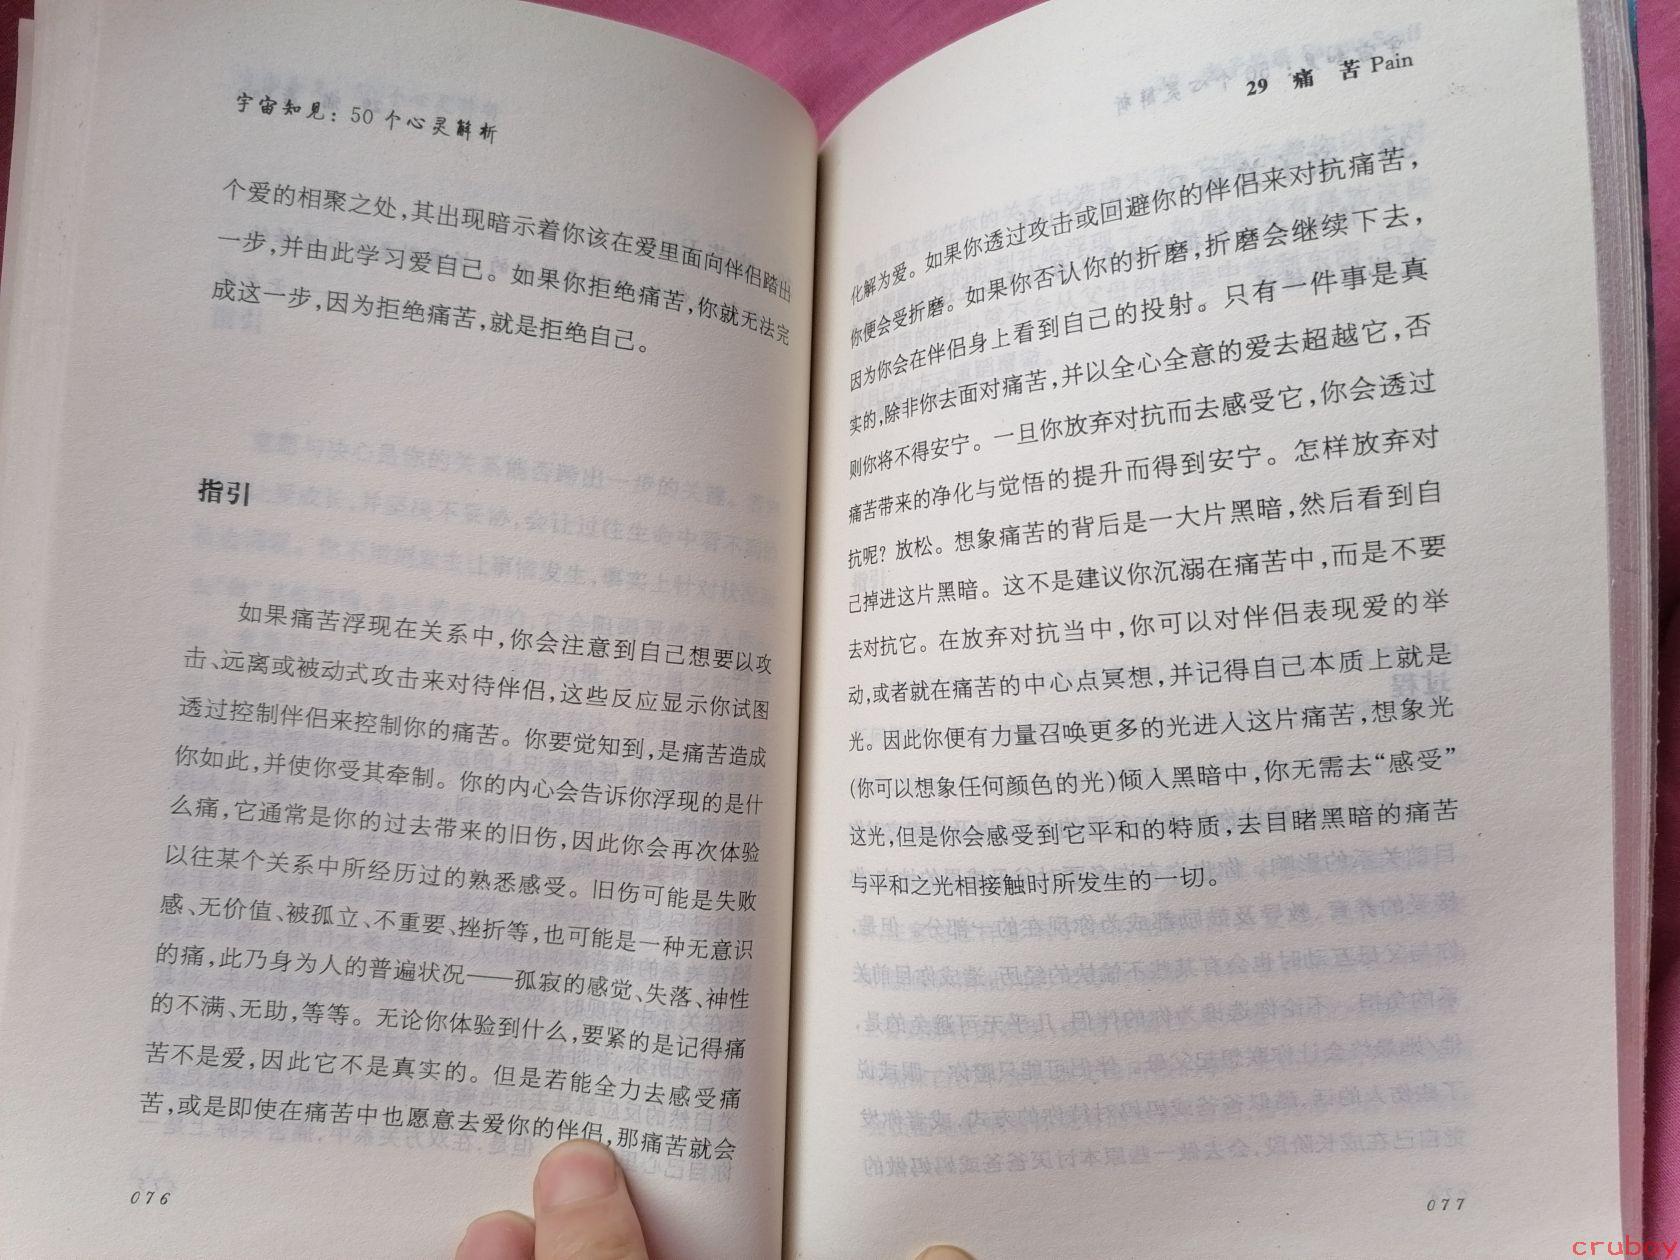 宇宙知见：50个心灵解析
个爱的相聚之处，其出现暗示着你该在爱里面向伴侣踏出
一步，并由此学习爱自己。如果你拒绝痛苦，你就无法完
成这一步，因为拒绝痛苦，就是拒绝自己。
指引
如果痛苦浮现在关系中，你会注意到自己想要以攻
击、远离或被动式攻击来对待伴侣，这些反应显示你试图
透过控制伴侣来控制你的痛苦。你要觉知到，是痛苦造成
你如此，并使你受其牵制。你的内心会告诉你浮现的是什
么痛，它通常是你的过去带来的旧伤，因此你会再次体验
以往某个关系中所经历过的熟悉感受。旧伤可能是失败
感、无价值、被孤立、不重要、挫折等，也可能是一种无意识
的痛，此乃身为人的普遍状况——孤寂的感觉、失落、神性
的不满、无助，等等。无论你体验到什么，要紧的是记得痛
苦不是爱，因此它不是真实的。但是若能全力去感受痛
苦，或是即使在痛苦中也愿意去爱你的伴侣，那痛苦就会
076
29 痛 苦 Pain
化解为爱。如果你透过攻击或回避你的伴侣来对抗痛苦，
你便会受折磨。如果你否认你的折磨，折磨会继续下去，
因为你会在伴侣身上看到自己的投射。只有一件事是真
实的，除非你去面对痛苦，并以全心全意的爱去超越它，否
则你将不得安宁。一旦你放弃对抗而去感受它，你会透过
痛苦带来的净化与觉悟的提升而得到安宁。怎样放弃对
抗呢？放松。想象痛苦的背后是一大片黑暗，然后看到自
己掉进这片黑暗。这不是建议你沉溺在痛苦中，而是不要
去对抗它。在放弃对抗当中，你可以对伴侣表现爱的举
动，或者就在痛苦的中心点冥想，并记得自己本质上就是
光。因此你便有力量召唤更多的光进入这片痛苦，想象光
（你可以想象任何颜色的光）倾入黑暗中，你无需去“感受”
这光，但是你会感受到它平和的特质，去目睹黑暗的痛苦
与平和之光相接触时所发生的一切。
077
cruboy